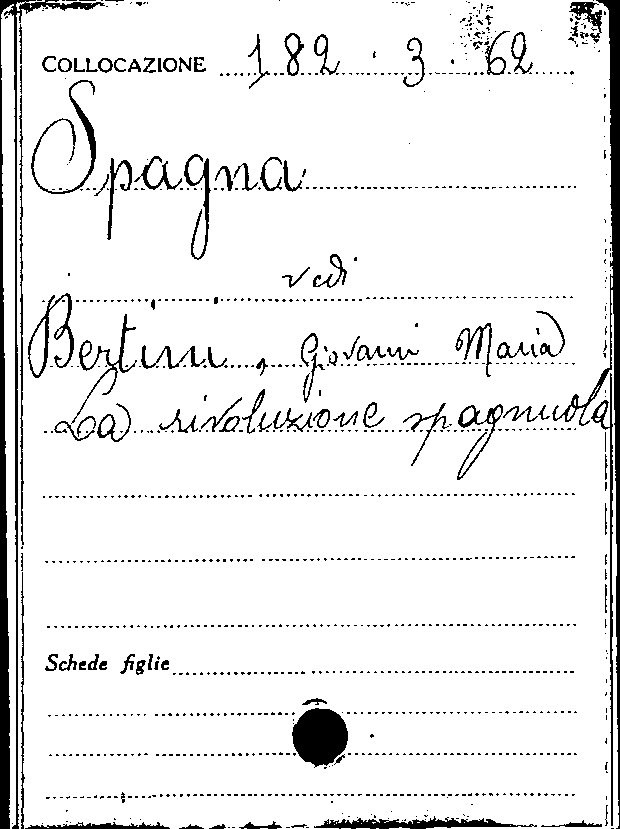 COLLOCAZIONE 182.3.62
Spagna
vedi
Bertini, Giovanni Maria
La rivoluzione spagnuola
Schede figlie